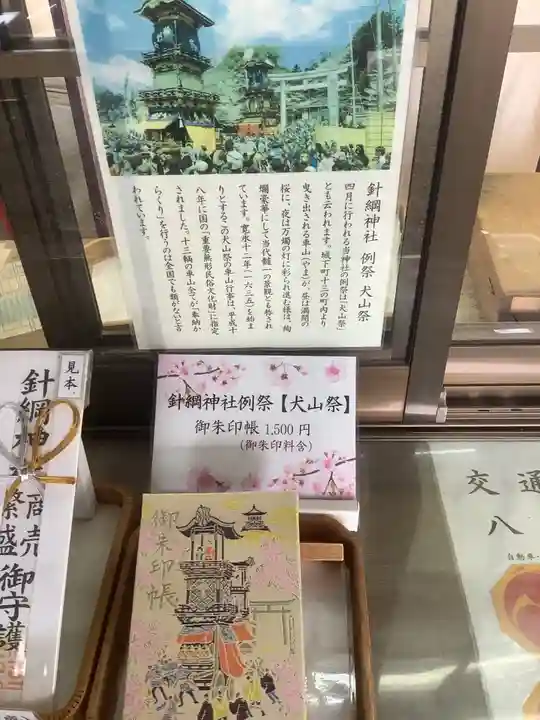 針綱神社 例祭 犬山祭
四月に行われる当神社の例祭は「犬山祭」
とも云われます。城下町十三の町内より
曳き出される車山(やま)が、昼は満開の
桜に、夜は万燭の灯に彩られ進む様は、絢
爛豪華にして当代髄一の景観とも称され
ています。寛永十二年(一六三五)を始ま
りとするこの犬山祭の車山行事は、平成十
八年に国の「重要無形民俗文化財」に指定
されました。十三輌の車山全てが、奉納か
らくり」を行うのは全国でも類がないと言
われています。
見本
針綱神
商売
繁盛
御守護
針綱神社例祭【犬山祭】
御朱印帳 1,500 円
(御朱印料含)
御朱印帳
交通
八
自動車・